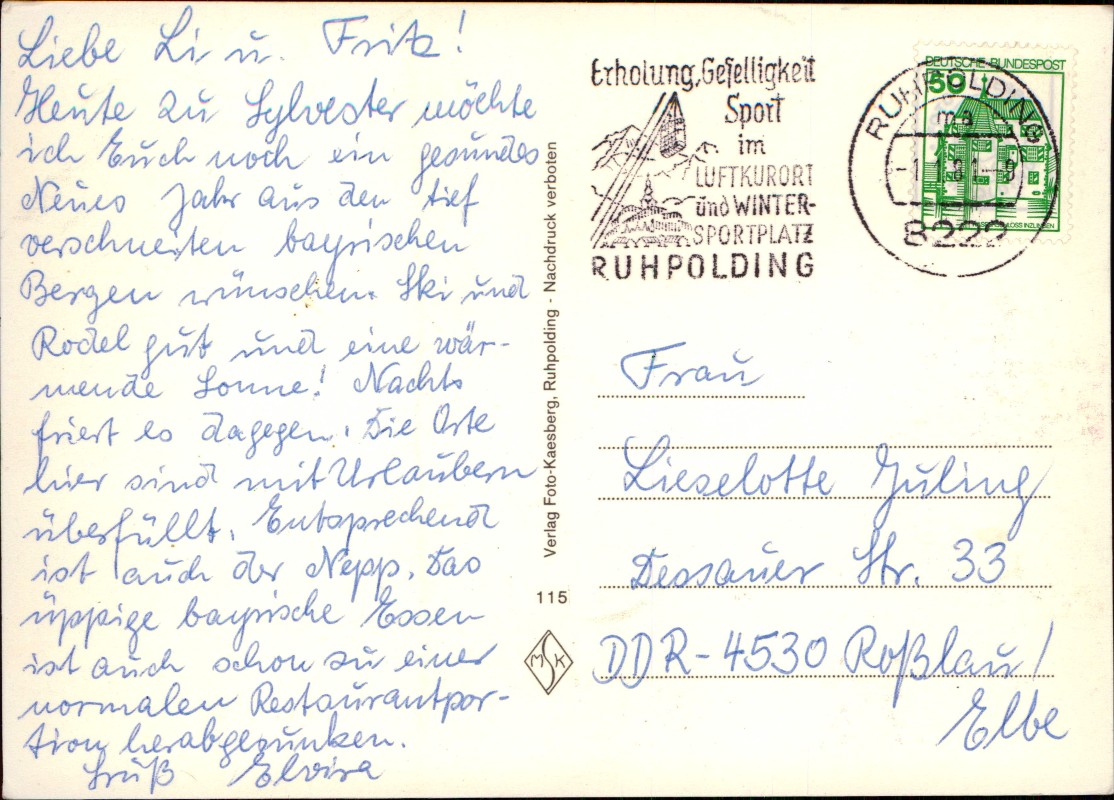 Liebe Li u. Fritz!
Heute zu Sylvester möchte
ich Euch noch ein gesundes
Neues Jahr aus den tief
verschneiten bayrischen
Bergen wünschen. Ski und
Rodel gut und eine wär-
mende Sonne! Nachts
friert es dagegen. Die Orte
hier sind mit Urlaubern
überfüllt. Entsprechend
ist auch der Nepp. Das
üppige bayrische Essen
ist auch schon zu einer
normalen Restaurantpor-
tion herabgesunken.
Gruß Elvira
Verlag Foto-Kaesberg, Ruhpolding - Nachdruck verboten
115
MSK
Erholung, Geselligkeit
Sport
im
LUFTKURORT
und WINTER-
SPORTPLATZ
RUHPOLDING
RUHPOLDING
ma
-1.1.81-8
8222
DEUTSCHE BUNDESPOST
50
SCHLOSS INZLINGEN
Frau
Lieselotte Juling
Dessauer Str. 33
DDR-4530 Roßlau/
Elbe